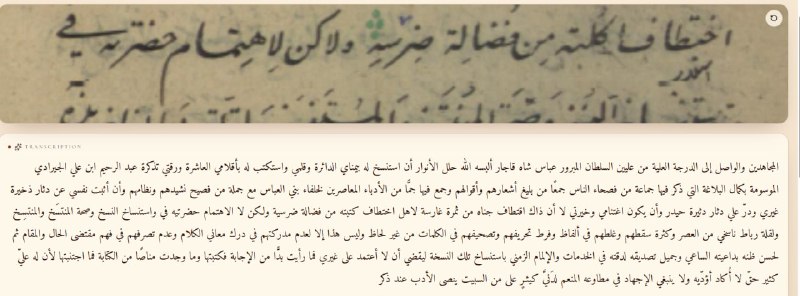 اختطاف كلبته من فضالة ضرسه ولاكن لاهتمام حضرته في
TRANSCRIPTION
المجاهدين والواصل إلى الدرجة العلية من عليين السلطان المبرور عباس شاه قاجار ألبسه الله حلل الأنوار أن استنسخ له بيمناي الداثرة وقلبي واستكتب له بأقلامي العاشرة ورقتي تذكرة عبد الرحيم ابن علي الجيرادي
الموسومة بكمال البلاغة التي ذكر فيها جماعة من فصحاء الناس جمعًا من بليغ أشعارهم وأقوالهم وجمع فيها جمًّا من الأدباء المعاصرين لخلفاء بني العباس مع جملة من فصيح نشيدهم ونظامهم وأن أثبت نفسي عن دثار ذخيرة
غيري ودرّ علي دثار دثيرة حيدر وأن يكون اغتنامي وخيرتي لا أن ذاك اقتطاف جناه من ثمرة غارسة لاهل اختطاف كتبته من فضالة ضرسية ولكن لا الاهتمام حضرتيه في واستنساخ النسخ وصحة المنتسَخ والمنتسِخ
ولقلة رباط ناسخي من العصر وكثرة سقطهم وغلطهم في ألفاظ وفرط تحريفهم وتصحيفهم في الكلمات من غير لحاظ وليس هذا إلا لعدم مدركتهم في درك معاني الكلام وعدم تصرفهم في فهم مقتضى الحال والمقام ثم
لحسن ظنه بداعيته الساعي وجميل تصديقه لدقته في الخدمات والإلمام الزمني باستنساخ تلك النسخة ليقضي أن لا أعتمد على غيري فما رأيت بدًّا من الإجابة فكتبتها وما وجدت مناصًا من الكتابة فما اجتنبتها لأن له عليّ
كثير حقّ لا أكاد أؤدّيه ولا ينبغي الإجهاد في مطاوعه المنعم لدَنيَّ كيشرٍ على من السبيت ينصى الأدب عند ذكر